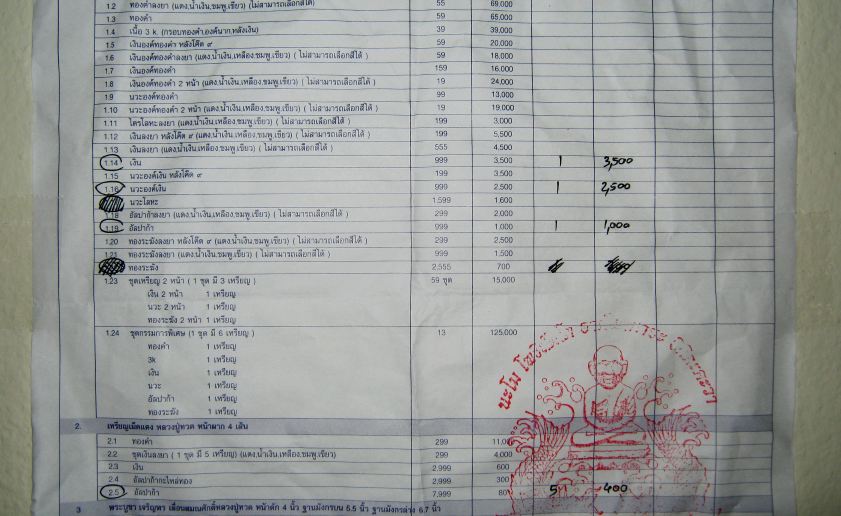 1.2 ทองคำลงยา (แดง,น้ำเงิน,ชมพู,เขียว) (ไม่สามารถเลือกสีได้) 55 69,000
1.3 ทองคำ 59 65,000
1.4 เนื้อ 3 k. (กรอบทองคำ,องค์นาก,หลังเงิน) 39 39,000
1.5 เงินองค์ทองคำ หลังโค๊ด ๙ 59 20,000
1.6 เงินองค์ทองคำลงยา (แดง,น้ำเงิน,เหลือง,ชมพู,เขียว) ( ไม่สามารถเลือกสีได้ ) 59 18,000
1.7 เงินองค์ทองคำ 159 16,000
1.8 เงินองค์ทองคำ 2 หน้า (แดง,น้ำเงิน,เหลือง,ชมพู,เขียว) ( ไม่สามารถเลือกสีได้ ) 19 24,000
1.9 นวะองค์ทองคำ 99 13,000
1.10 นวะองค์ทองคำ 2 หน้า (แดง,น้ำเงิน,เหลือง,ชมพู,เขียว) ( ไม่สามารถเลือกสีได้ ) 19 19,000
1.11 ไตรโลหะลงยา (แดง,น้ำเงิน,เหลือง,ชมพู,เขียว) ( ไม่สามารถเลือกสีได้ ) 199 3,000
1.12 เงินลงยา หลังโค๊ด ๙ (แดง,น้ำเงิน,เหลือง,ชมพู,เขียว) ( ไม่สามารถเลือกสีได้ ) 199 5,500
1.13 เงินลงยา (แดง,น้ำเงิน,เหลือง,ชมพู,เขียว) ( ไม่สามารถเลือกสีได้ ) 555 4,500
1.14 เงิน 999 3,500 1 3,500
1.15 นวะองค์เงิน หลังโค๊ด ๙ 199 3,500
1.16 นวะองค์เงิน 999 2,500 1 2,500
นวะโลหะ 1,599 1,600
1.18 อัลปาก้าลงยา (แดง,น้ำเงิน,เหลือง,ชมพู,เขียว) ( ไม่สามารถเลือกสีได้ ) 299 2,000
1.19 อัลปาก้า 999 1,000 1 1,000
1.20 ทองระฆังลงยา หลังโค๊ด ๙ (แดง,น้ำเงิน,เหลือง,ชมพู,เขียว) ( ไม่สามารถเลือกสีได้ ) 299 2,500
1.21 ทองระฆังลงยา (แดง,น้ำเงิน,เหลือง,ชมพู,เขียว) ( ไม่สามารถเลือกสีได้ ) 999 1,500
ทองระฆัง 2,555 700
1.23 ชุดเหรียญ 2 หน้า ( 1 ชุด มี 3 เหรียญ ) 59 ชุด 15,000
เงิน 2 หน้า 1 เหรียญ
นวะ 2 หน้า 1 เหรียญ
ทองระฆัง 2 หน้า 1 เหรียญ
1.24 ชุดกรรมการพิเศษ (1 ชุด มี 6 เหรียญ ) 13 125,000
ทองคำ 1 เหรียญ
3k 1 เหรียญ
เงิน 1 เหรียญ
นวะ 1 เหรียญ
อัลปาก้า 1 เหรียญ
ทองระฆัง 1 เหรียญ
2. เหรียญเม็ดแตง หลวงปู่ทวด หน้าผาก 4 เส้น
2.1 ทองคำ 299 11,00
2.2 ชุดเงินลงยา ( 1 ชุด มี 5 เหรียญ) (แดง,น้ำเงิน,เหลือง,ชมพู,เขียว) 299 4,000
2.3 เงิน 2,999 600
2.4 อัลปาก้ากะไหล่ทอง 2,999 300
2.5 อัลปาก้า 7,999 80 5 400
3 พระบูชา เจริญพร เลื่อนสมณศักดิ์หลวงปู่ทวด หน้าตัก 4 นิ้ว ฐานมังกรบน 5.5 นิ้ว ฐานมังกรล่าง 6.7 นิ้ว